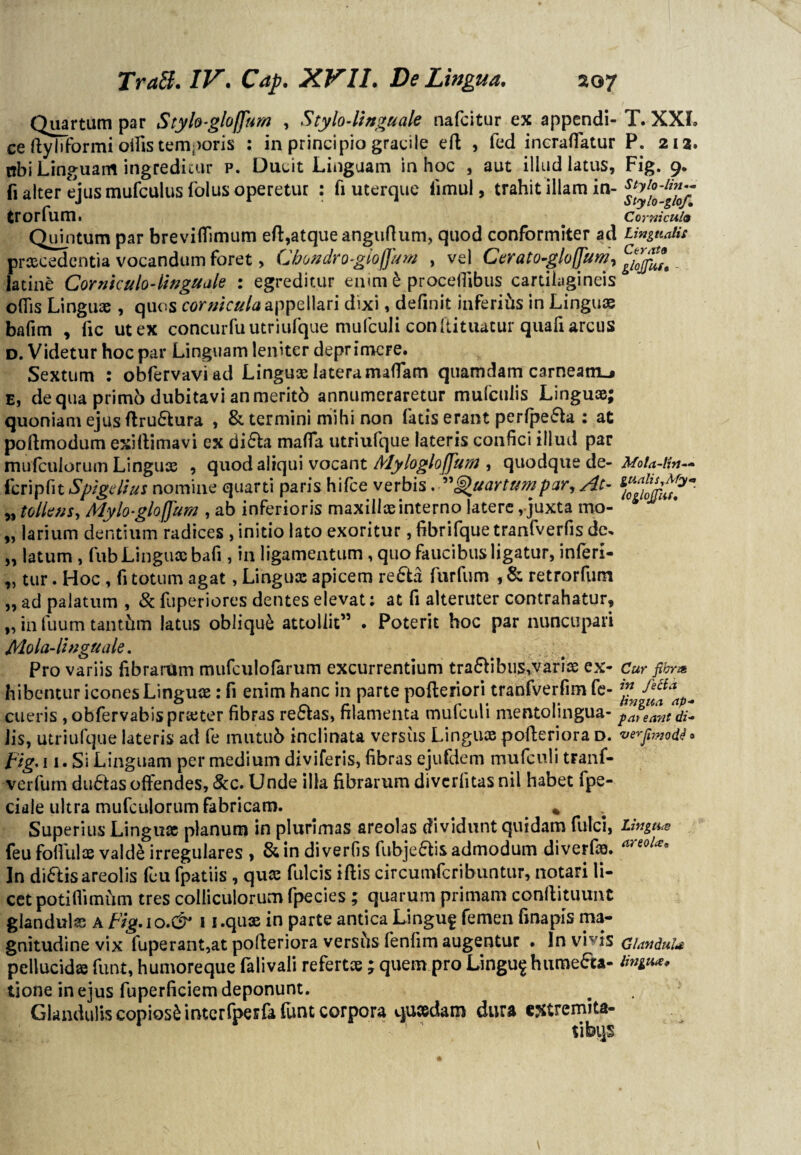 Tract. IV. Cap. XVII. De Lingua. 207
Quartum par Stylo-gloſſum , Stylo-linguale naſcitur ex appendi- T. XXI.
ce ſtyliformi oſſis temporis : in principio gracile eſt , ſed incraſſatur P. 212.
ubi Linguam ingreditur P. Ducit Linguam in hoc , aut illud latus, Fig. 9.
ſi alter ejus muſculus ſolus operetur : ſi uterque ſimul, trahit illam in- Stylo-lin--
trorſum. Stylo-gloſ.
Corniculo
Quintum par breviſſimum eſt,atque anguſtum, quod conformiter ad Lingualis
præcedentia vocandum foret , Chondro-gloſſum , vel Cerato-gloſſum, Cerato
gloſſus.
latinè Corniculo-linguale : egreditur enim è proceſſibus cartilagineis
oſſis Linguæ , quos cornicula appellari dixi, definit inferiùs in Linguæ
baſim , ſic ut ex concurſu utriuſque muſculi conſtituatur quaſi arcus
D. Videtur hoc par Linguam leniter deprimere.
Sextum : obſervavi ad Linguæ latera maſſam quamdam carneam
E, de qua primò dubitavi an meritò annumeraretur muſculis Linguæ;
quoniam ejus ſtructura , & termini mihi non ſatis erant perſpecta : at
poſtmodum exiſtimavi ex dicta maſſa utriuſque lateris confici illud par
muſculorum Linguæ , quod aliqui vocant Mylogloſſum , quodque de- Mola-lin--
ſcripſit Spigelius nomine quarti paris hiſce verbis . ”Quartum par, At- gualis,My-
„ tollens, Mylo-gloſſum , ab inferioris maxillæ interno latere , juxta mo- logloſſus.
„ larium dentium radices , initio lato exoritur , fibriſque tranſverſis de-
„ latum , ſub Linguæ baſi , in ligamentum , quo faucibus ligatur, inſeri-
„ tur . Hoc , ſi totum agat , Linguæ apicem rectà furſum , & retrorſum
„ ad palatum , & ſuperiores dentes elevat : at ſi alteruter contrahatur,
„ in ſuum tantùm latus obliquè attollit” . Poterit hoc par nuncupari
Mola-linguale.
Pro variis fibrarum muſculoſarum excurrentium tractibus,variæ ex- Cur fibræ
hibentur icones Linguæ : ſi enim hanc in parte poſteriori tranſverſim ſe- in ſectà
cueris , obſervabis præter fibras rectas, filamenta muſculi mentolingua- lingua ap-
pareant di-
lis, utriuſque lateris ad ſe mutuò inclinata versùs Linguæ poſteriora D. verſimodè.
Fig. 11. Si Linguam per medium diviſeris, fibras ejuſdem muſculi tranſ-
verſum ductas offendes, &c. Unde illa fibrarum diverſitas nil habet ſpe-
ciale ultra muſculorum fabricam.
Superius Linguæ planum in plurimas areolas dividunt quidam ſulci, Linguæ
ſeu foſſulæ valdè irregulares , & in diverſis ſubjectis admodum diverſæ. areolæ.
In dictis areolis ſeu ſpatiis , quæ ſulcis iſtis circumſcribuntur, notari li-
cet potiſſimùm tres colliculorum ſpecies ; quarum primam conſtituunt
glandulæ A Fig. 10.& 11.quæ in parte antica Linguę ſemen ſinapis ma-
gnitudine vix ſuperant,at poſteriora versùs ſenſim augentur . In vivis Glandulæ
pellucidæ ſunt, humoreque ſalivali refertæ ; quem pro Linguę humecta- linguæ.
tione in ejus ſuperficiem deponunt.
Glandulis copiosè interſperſa ſunt corpora quædam dura extremita-
tibus